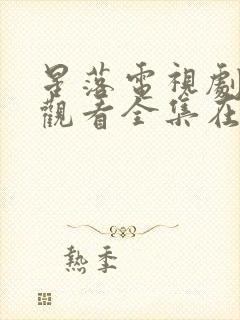 星落電視劇
觀看全集在
熱季